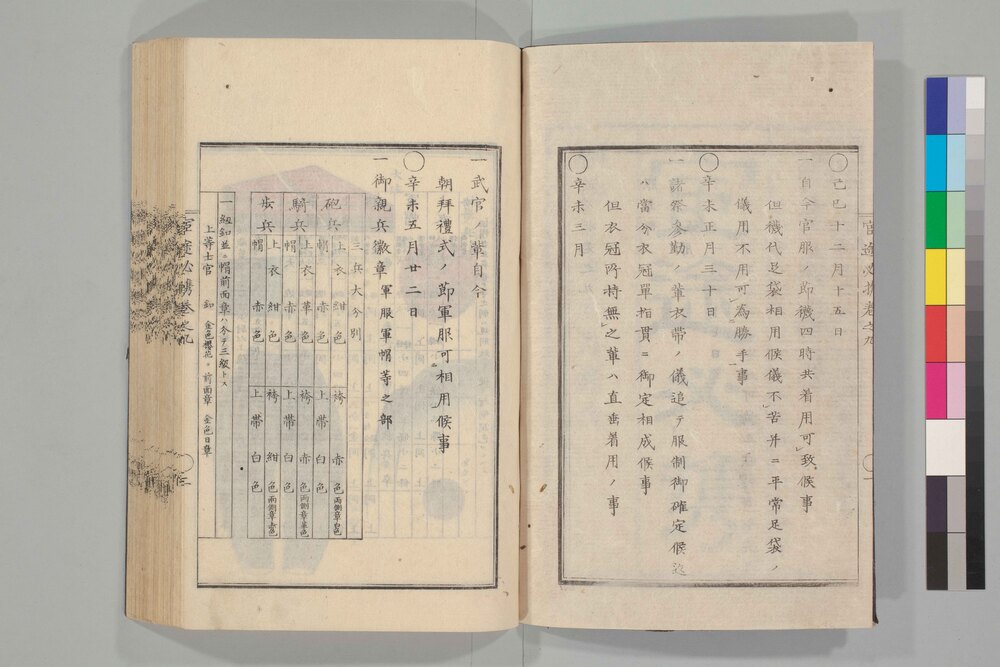 己巳十二月十五日
一自今官服ノ節襪四時共着用可致候事
但襪代足袋相用候儀不苦并ニ平常足袋ノ
儀用不用可為勝手事
辛未正月三十日
一諸祭參勤ノ輩衣帶ノ儀追テ服制御確定候迄
ハ當分衣冠單指貫ニ御定相成候事
但衣冠所持無之輩ハ直垂着用ノ事
辛未三月
一武官ノ輩自今
朝拜禮式ノ節軍服可相用候事
辛未五月廿二日
一御親兵徽章軍服軍帽等之部
三兵大分別
砲兵 上衣 紺色 袴 赤色 両側章白色
帽 赤色 上帶 白色
騎兵 上衣 革色 袴 赤色 両側章革色
帽 赤色 上帶 白色
歩兵 上衣 紺色 袴 紺色 両側章赤色
帽 赤色 上帶 白色
一紐釦並ニ帽前面章ヲ分テ三級トス
上等士官 釦 金色櫻花 前面章 金色日章